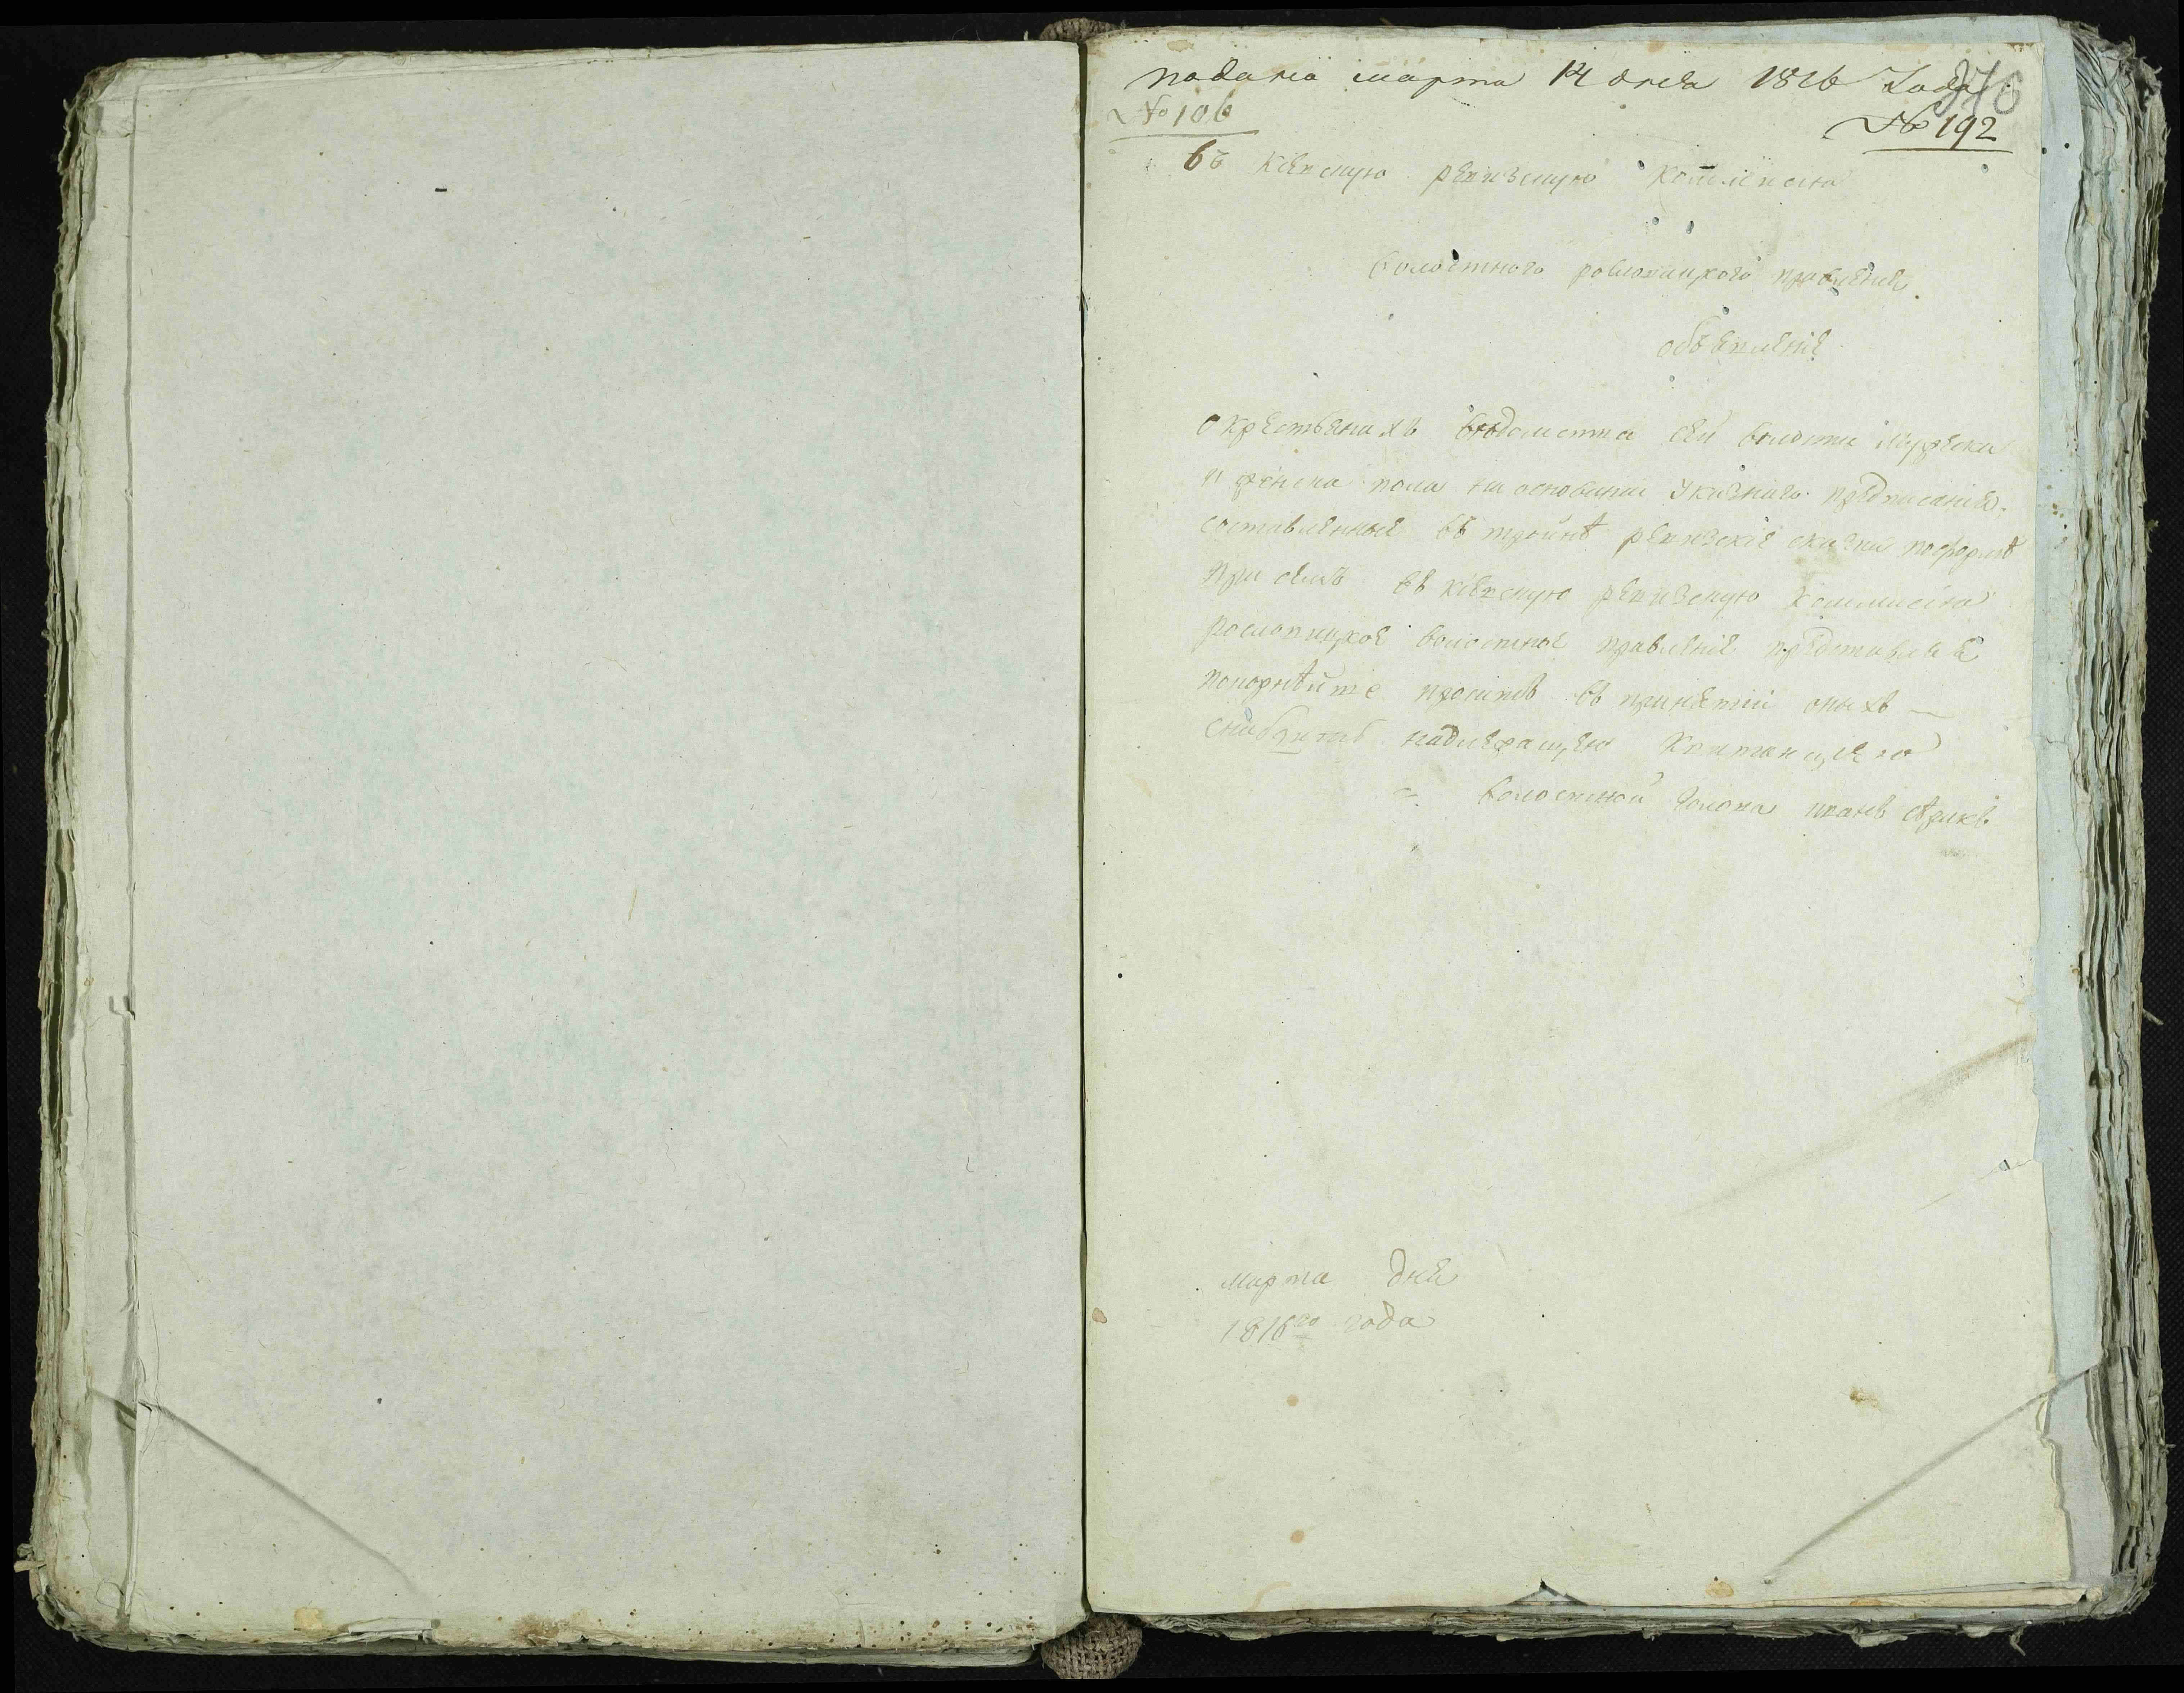 подана марта 14 дня 1816 Года
376
№ 106
№ 192
въ кіевскую ревизскую комисію
волостного рославицкого правленія
объявленіе
о крестьянахъ вѣдомства сей волости мужеска
и женска пола на основании указного предписанія
составленные въ тройнѣ ревизскіе сказки по формѣ
при семъ въ кіевскую ревизскую коммисію
рославицкое волостное правленіе представляя
покорнѣйше проситъ въ принятіи оныхъ
снабдить надлежащею квитанціею
волостной голова иванъ
марта дня
1816го года